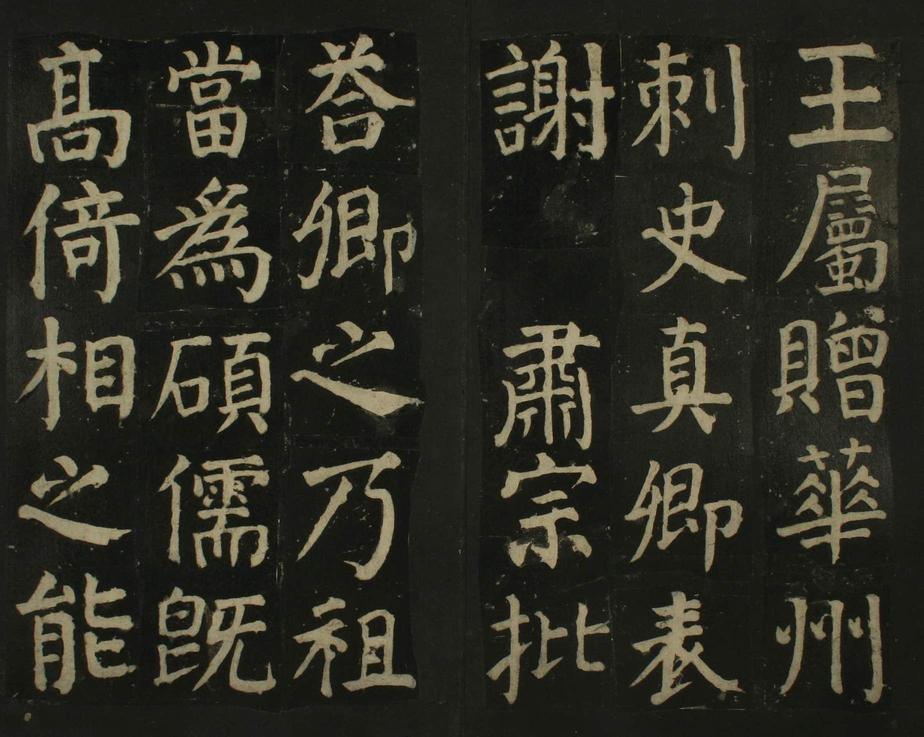 王屬贈華州
刺史真卿表
謝肅宗批
答卿之乃祖
當為碩儒既
高倚相之能